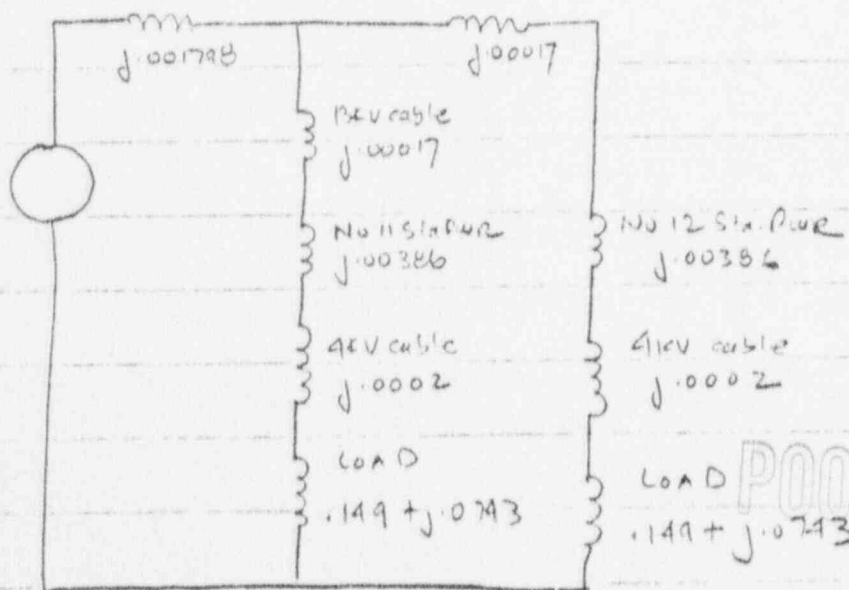 j.001798
j.00017
13KV cable
j.00017
No 11 Stn PWR
j.00386
4KV cable
j.0002
LOAD
.149 + j.0743
No 12 Stn. PWR
j.00386
4KV cable
j.0002
LOAD
.149 + j.0743
POO